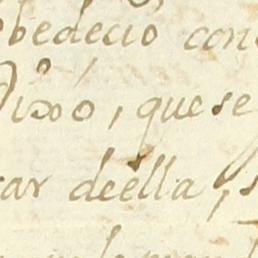 obedecio con
Dixo, que se
ar deella, s